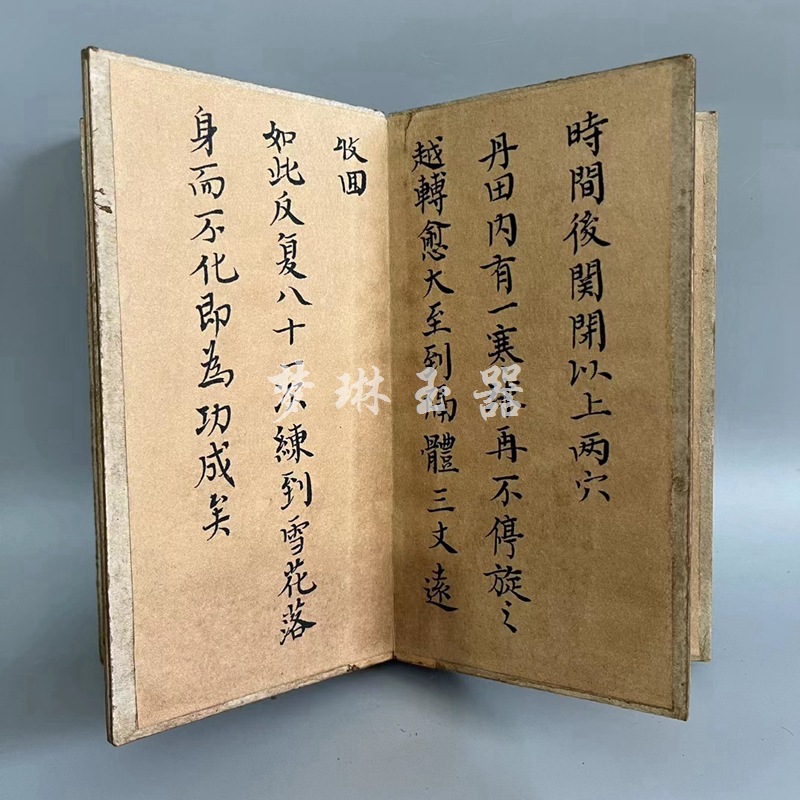 時間後関閉以上两穴
丹田内有一寒球再不停旋之
越轉愈大至到隔體三丈遠
收囬
如此反复八十一次練到雪花落
身而不化即為功成矣
梦琳玉器